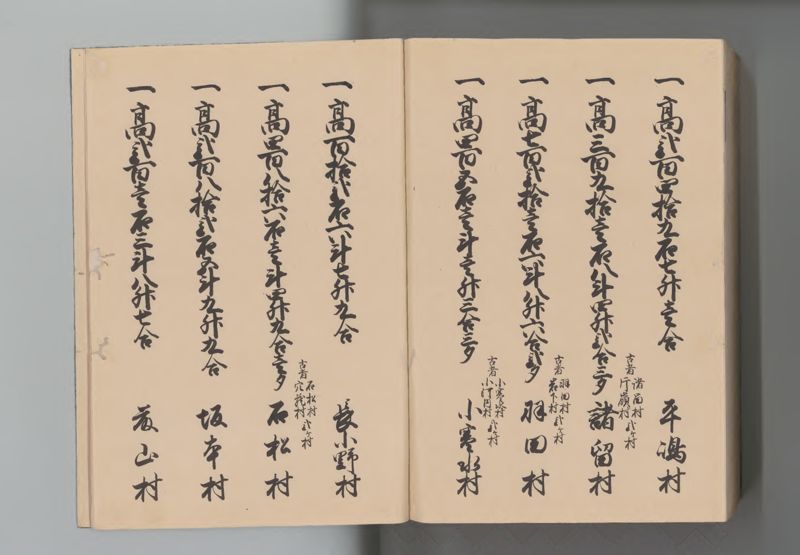 一高弐百四拾九石七升壱合
平嶋村
一高三百九拾壱石八斗四升弐合三夕
古者
諸留村
片嶺村
弐ヶ村
諸留村
一高七百弐拾壱石六斗八升六合弐夕
古者
羽田村
岩下村
弐ヶ村
羽田村
一高四百五石壱斗壱升三合三夕
古者
小寒水村
弐ヶ村
小寒水村
一高百拾弐石六斗七升九合
長小野村
一高四百八拾六石壱斗四升九合壱夕
古者
石松村
弐ヶ村
石松村
一高弐百八拾弐石五斗九升九合
坂本村
一高弐百壱石三斗八升七合
山村